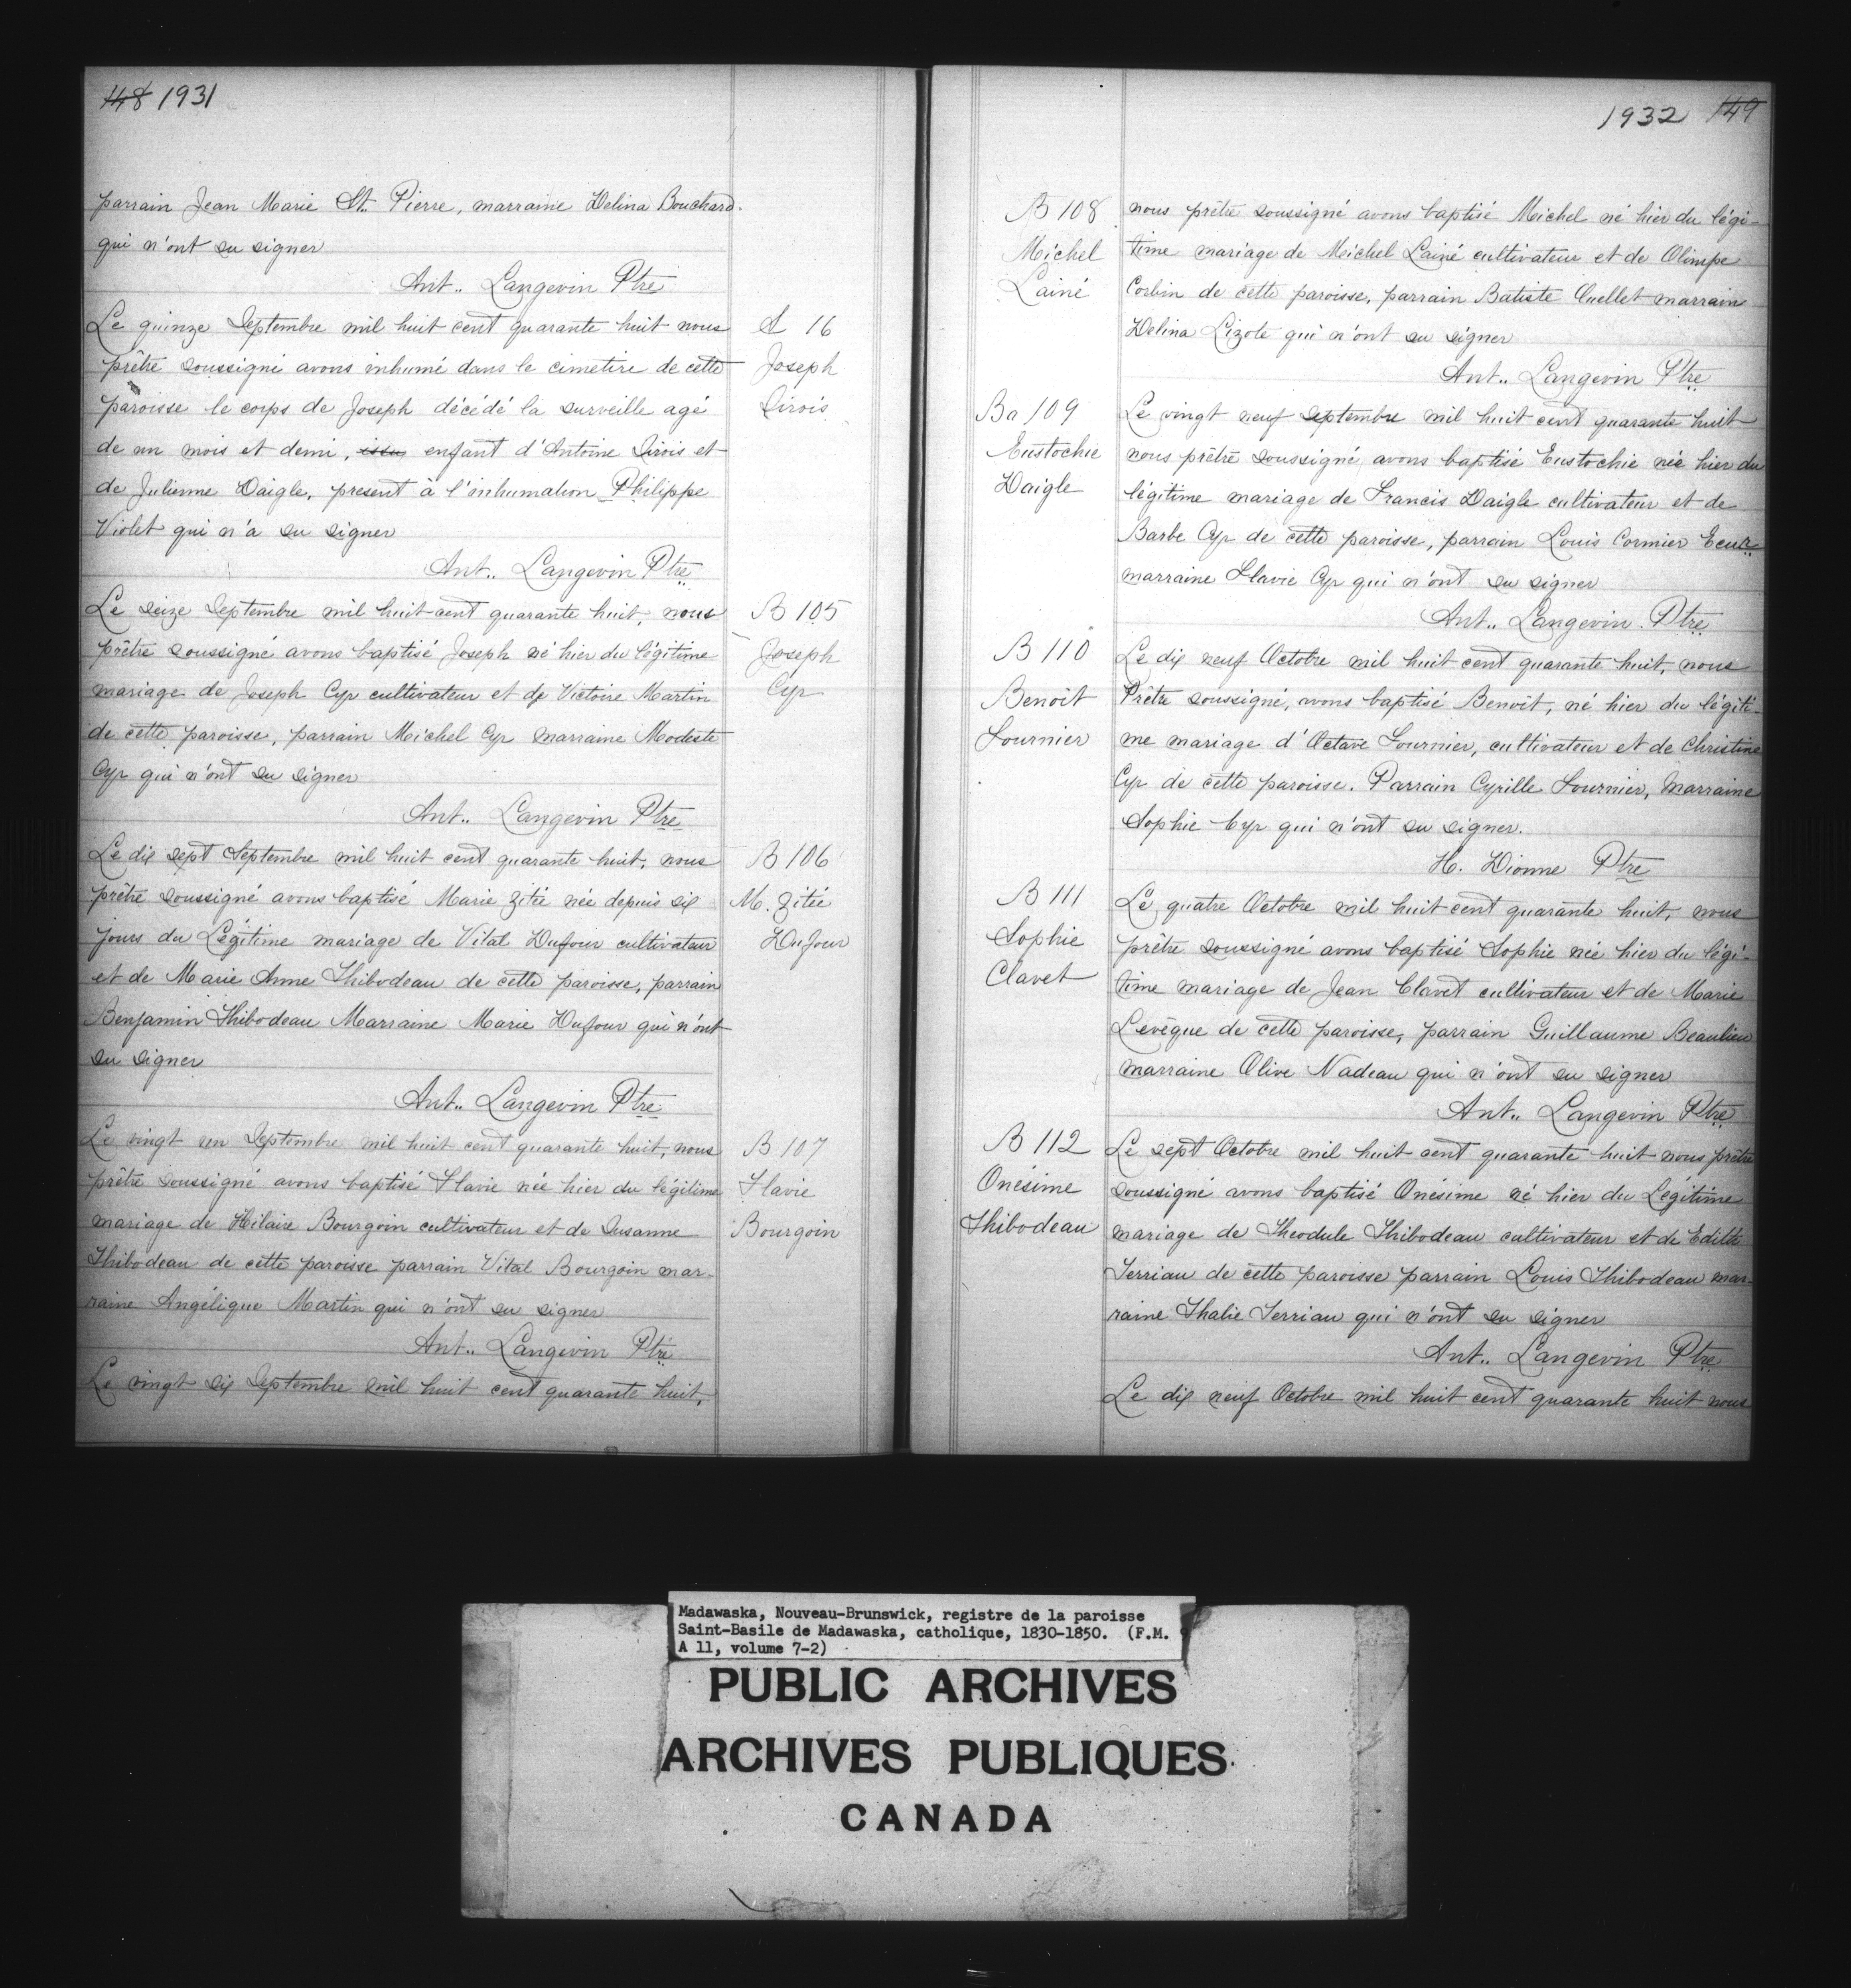 148 1931
parrain Jean Marie St. Pierre, marraine Delina Bouchard.
qui n'ont su signer
Ant.. Langevin Ptre
Le quinze Septembre mil huit cent quarante huit nous
prêtre soussigné avons inhumé dans le cimetire de cette
paroisse le corps de Joseph décédé la surveille agé
de un mois et demi, issu enfant d'Antoine Sirois et
de Julienne Daigle, present à l'inhumation Philippe
Violet qui n'a su signer
Ant.. Langevin Ptre
S 16
Joseph
Sirois
Le seize Septembre mil huit cent quarante huit, nous
prêtre soussigné avons baptisé Joseph né hier du légitime
mariage de Joseph Cyr cultivateur et de Victoire Martin
de cette paroisse, parrain Michel Cyr marraine Modeste
Cyr qui n'ont su signer
Ant.. Langevin Ptre
B 105
Joseph
Cyr
Le dix sept Septembre mil huit cent quarante huit, nous
prêtre soussigné avons baptisé Marie Zitée née depuis six
jours du Légitime mariage de Vital Dufour cultivateur
et de Marie Anne Thibodeau de cette paroisse, parrain
Benjamin Thibodeau Marraine Marie Dufour qui n'ont
su signer
Ant.. Langevin Ptre
B 106
M. Zitée
Dufour
Le vingt un Septembre mil huit cent quarante huit, nous
prêtre soussigné avons baptisé Flavie née hier du légitime
mariage de Hilaire Bourgoin cultivateur et de Susanne
Thibodeau de cette paroisse parrain Vital Bourgoin mar-
raine Angélique Martin qui n'ont su signer
Ant.. Langevin Ptre
B 107
Flavie
Bourgoin
Le vingt six Septembre mil huit cent quarante huit,
1932 149
B 108
Michel
Lainé
nous prêtre soussigné avons baptisé Michel né hier du légi-
time mariage de Michel Lainé cultivateur et de Olimpe
Corbin de cette paroisse, parrain Batiste Ouellet marrain
Delina Lizote qui n'ont su signer
Ant.. Langevin Ptre
Ba 109
Eustochie
Daigle
Le vingt neuf septembre mil huit cent quarante huit
nous prêtre soussigné avons baptisé Eustochie née hier du
légitime mariage de Francis Daigle cultivateur et de
Barbe Cyr de cette paroisse, parrain Louis Cormier Ecur
marraine Flavie Cyr qui n'ont su signer
Ant.. Langevin. Ptre
B 110
Benoit
Fournier
Le dix neuf Octobre mil huit cent quarante huit, nous
Prêtre soussigné, avons baptisé Benoit, né hier du légiti-
me mariage d'Octave Fournier, cultivateur et de Christine
Cyr de cette paroisse. Parrain Cyrille Fournier, Marraine
Sophie Cyr qui n'ont su signer.
H. Dionne Ptre
B 111
Sophie
Clavet
Le quatre Octobre mil huit cent quarante huit, nous
prêtre soussigné avons baptisé Sophie née hier du légi-
time mariage de Jean Clavet cultivateur et de Marie
Levêque de cette paroisse, parrain Guillaume Beaulieu
marraine Olive Nadeau qui n'ont su signer
Ant.. Langevin Ptre
B 112
Onésime
Thibodeau
Le sept Octobre mil huit cent quarante huit nous prêtre
soussigné avons baptisé Onésime né hier du Légitime
mariage de Theodule Thibodeau cultivateur et de Edith
Terriau de cette paroisse parrain Louis Thibodeau mar-
raine Thalie Terriau qui n'ont su signer
Ant.. Langevin Ptre
Le dix neuf Octobre mil huit cent quarante huit nous
Madawaska, Nouveau-Brunswick, registre de la paroisse
Saint-Basile de Madawaska, catholique, 1830-1850. (F.M. 9
A 11, volume 7-2)
PUBLIC ARCHIVES
ARCHIVES PUBLIQUES
CANADA